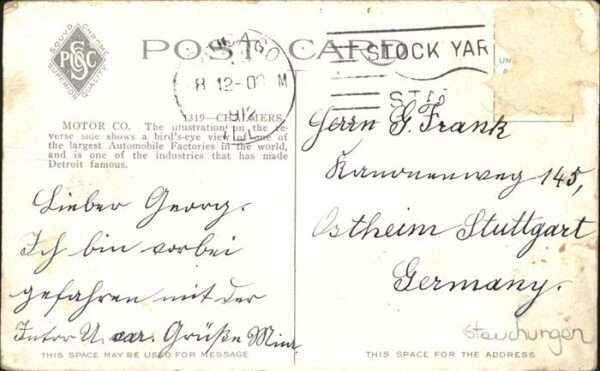 SOUVO CHROME
PSC CO
SUPERIOR QUALITY
POST CARD
CHICAGO
8 12-00 M
1912
ILL.
STOCK YAR
STA
1319—CHALMERS-
MOTOR CO. The illustration on the re-
verse side shows a bird's-eye view of one of
the largest Automobile Factories in the world,
and is one of the industries that has made
Detroit famous.
Lieber Georg.
Ich bin vorbei
gefahren mit der
car. Grüße
THIS SPACE MAY BE USED FOR MESSAGE
Herrn G. Frank
Kanonenweg 145,
Ostheim Stuttgart
Germany.
Stauchungen
THIS SPACE FOR THE ADDRESS